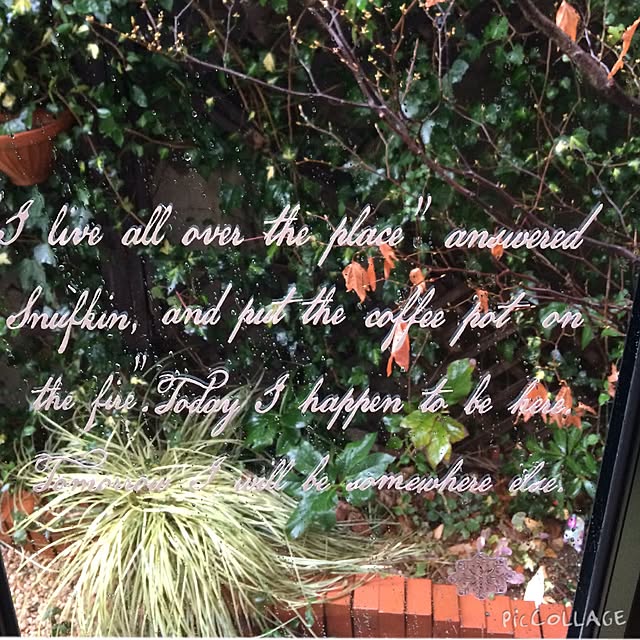 "I live all over the place" answered
Snufkin, and put the coffee pot on
the fire". "Today I happen to be here.
Tomorrow I will be somewhere else.
PICCOLLAGE